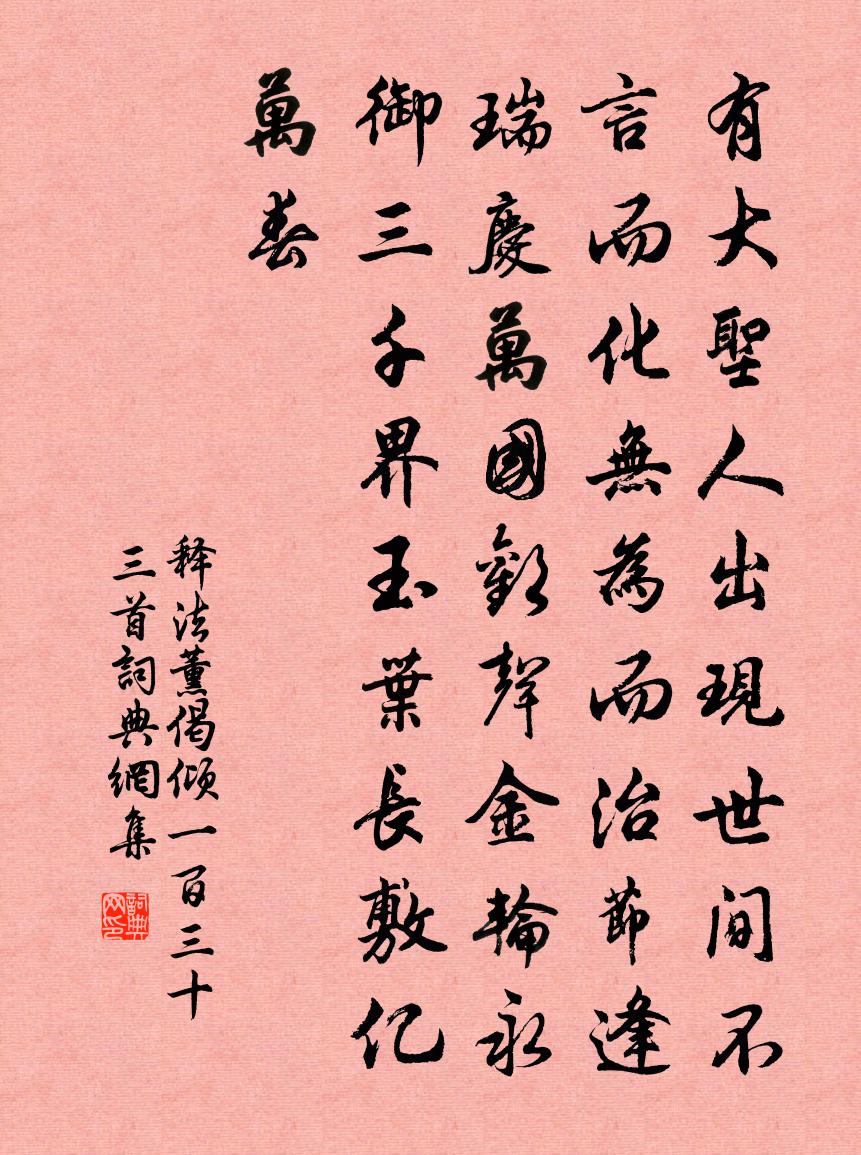 有大聖人出現世间不
言而化無為而治節逢
瑞慶萬國歡聲金輪永
御三千界玉葉長敷亿
萬春
释法薰偈傾一百三十
三首詞典網集
詞典
网印